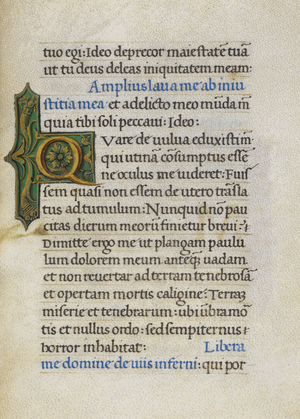 tuo egi: Ideo deprecor maiestatẽ tuã
ut tu deus deleas iniquitatem meam:
Amplius laua me ab iniu
stitia mea et adelicto meo mũda m̃
quia tibi soli peccaui: Ideo:
Quare de uulua eduxisti m̃
qui utinã cõsumptus esse
ne oculus me uideret: Fuis
sem quasi non essem de utero trãsla
tus ad tumulum: Nunquid nõ pau
citas dierum meorũ finietur breui:
Dimitte ergo me ut plangam paulu
lum dolorem meum anteq̃ uadam
et non reuertar ad terram tenebrosã
et opertam mortis caligine: Terrã
miserie et tenebrarum: ubi ũbramõ
tis et nullus ordo: sed sempiternus
horror inhabitat: Libera
me domine de uiis inferni: qui por